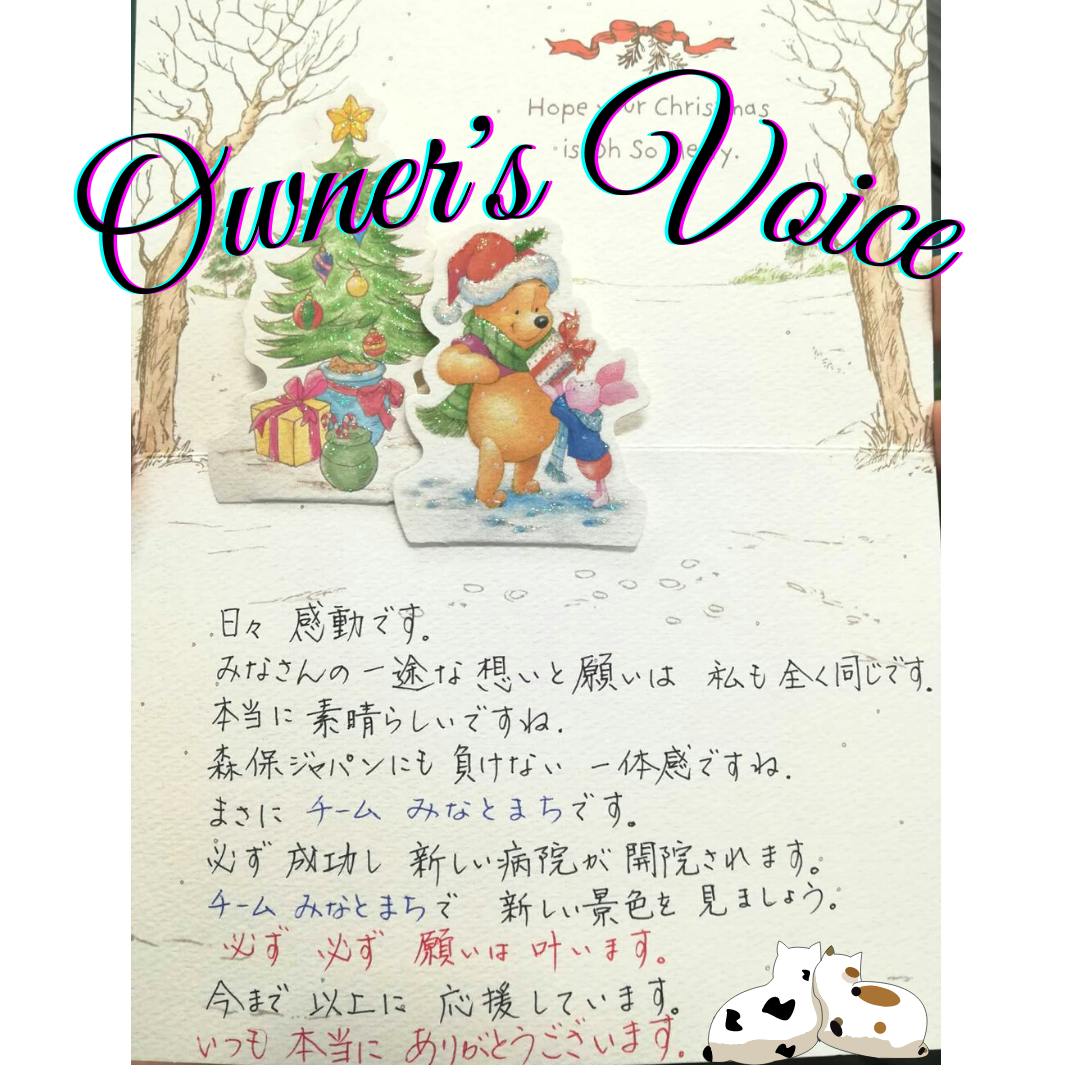 Hope your Christmas
is oh So merry.
Owner's Voice
日々 感動です。
みなさんの一途な想いと願いは 私も全く同じです.
本当に素晴らしいですね.
森保ジャパンにも負けない 一体感ですね.
まさに チーム みなとまちです。
必ず成功し 新しい病院が開院されます。
チーム みなとまちで 新しい景色を見ましょう。
必ず 必ず 願いは叶います。
今まで以上に 応援しています。
いつも本当にありがとうございます。